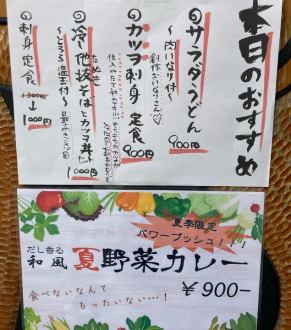 本日のおすすめ
◎サラダうどん
〜肉いなり付〜
900円
◎カツオ刺身定食
900円
◎冷やし
たぬき
そばとカツオ丼
〜とろろ温玉付〜
1000円
◎刺身定食
1300円
→1000円
夏季限定
パワープッシュ!!!
だし香る
和風
夏野菜カレー
¥900-
食べないなんて
もったいない…!